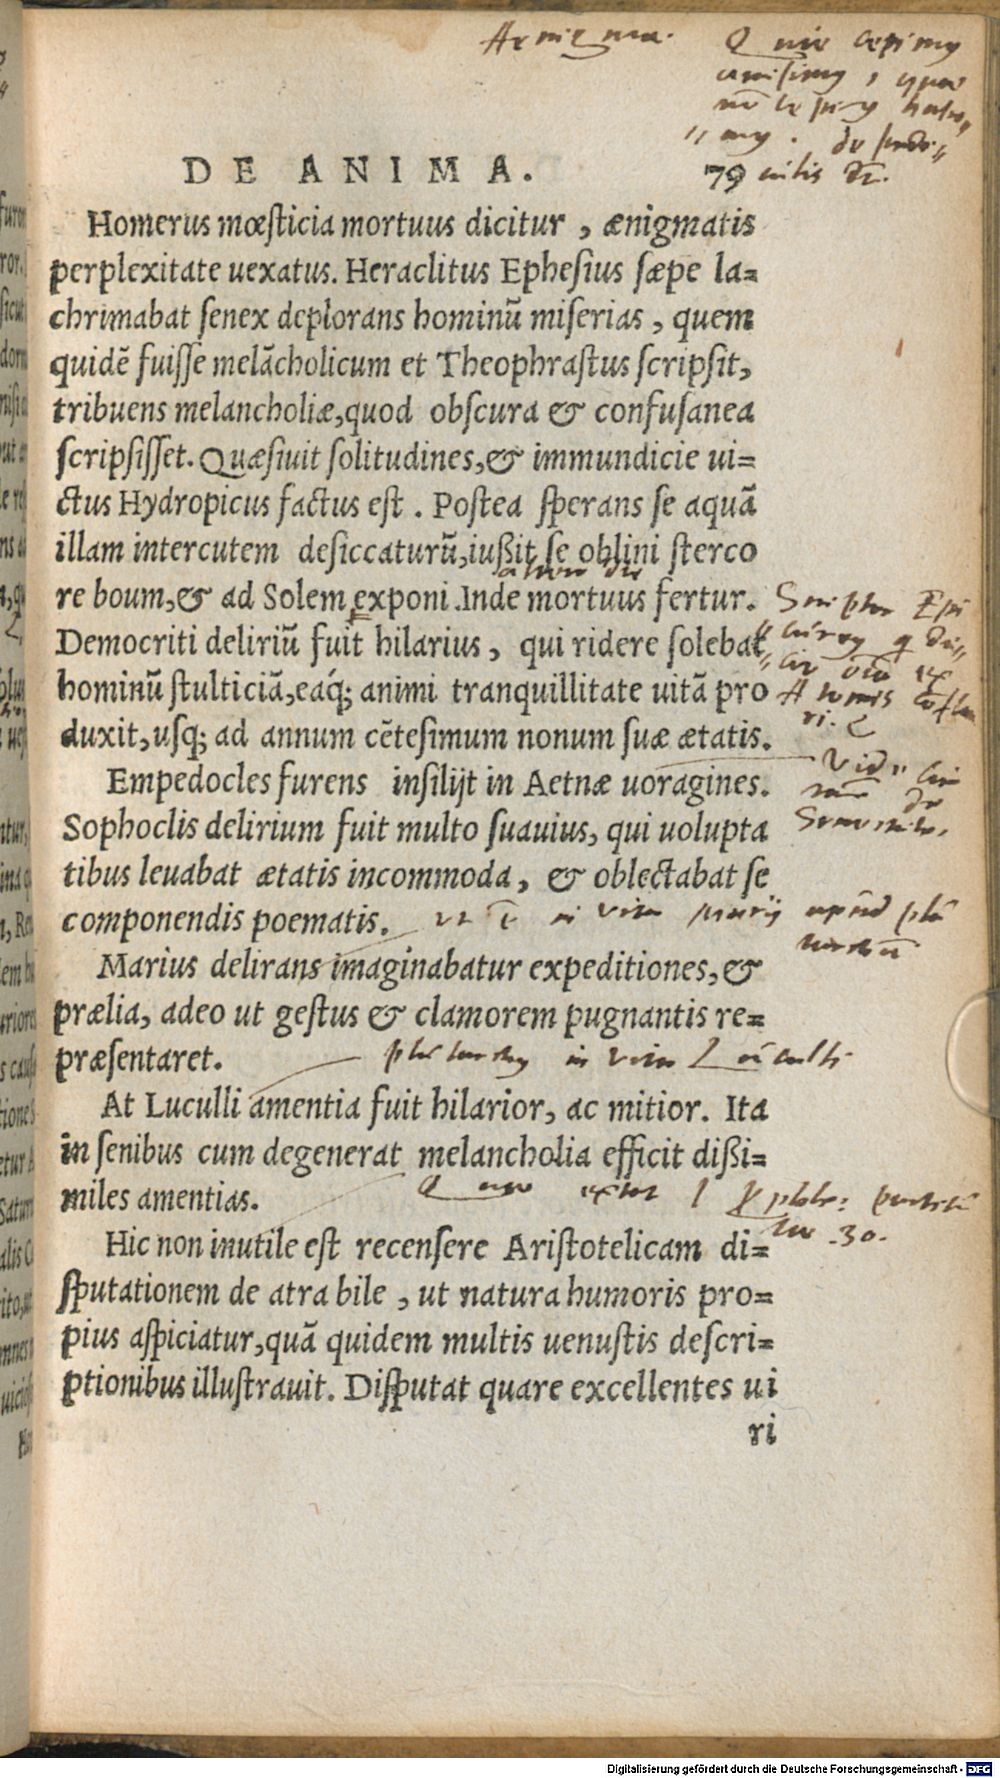 Aenigma. Quae cepimus
amisimus, quae
nō cepimus habe„
„mus. de pedi„
DE ANIMA. 79 culis &c.
Homerus mœsticia mortuus dicitur, ænigmatis
perplexitate uexatus. Heraclitus Ephesius sæpe la=
chrimabat senex deplorans hominū miserias, quem
quidē fuisse melācholicum et Theophrastus scripsit,
tribuens melancholiæ, quod obscura & confusanea
scripsisset. Quæsiuit solitudines, & immundicie ui=
ctus Hydropicus factus est. Postea sperans se aquā
illam intercutem desiccaturū, iußit se oblini sterco
re boum, & ad Solem exponi. Inde mortuus fertur.
Democriti deliriū fuit hilarius, qui ridere solebat
hominū stulticiā, eáq; animi tranquillitate uitā pro
duxit, usq; ad annum cētesimum nonum suæ ætatis.
Empedocles furens insilijt in Aetnæ uoragines.
Sophoclis delirium fuit multo suauius, qui uolupta
tibus leuabat ætatis incommoda, & oblectabat se
componendis poematis. ut ē in vita Marij apud plu
tarchū
Marius delirans imaginabatur expeditiones, &
prælia, adeo ut gestus & clamorem pugnantis re=
præsentaret. plutarchus in vita Luculli
At Luculli amentia fuit hilarior, ac mitior. Ita
in senibus cum degenerat melancholia efficit dißi=
miles amentias.
Hic non inutile est recensere Aristotelicam di=
sputationem de atra bile, ut natura humoris pro=
pius aspiciatur, quā quidem multis uenustis descri=
ptionibus illustrauit. Disputat quare excellentes ui
ri
Digitalisierung gefördert durch die Deutsche Forschungsgemeinschaft - DFG